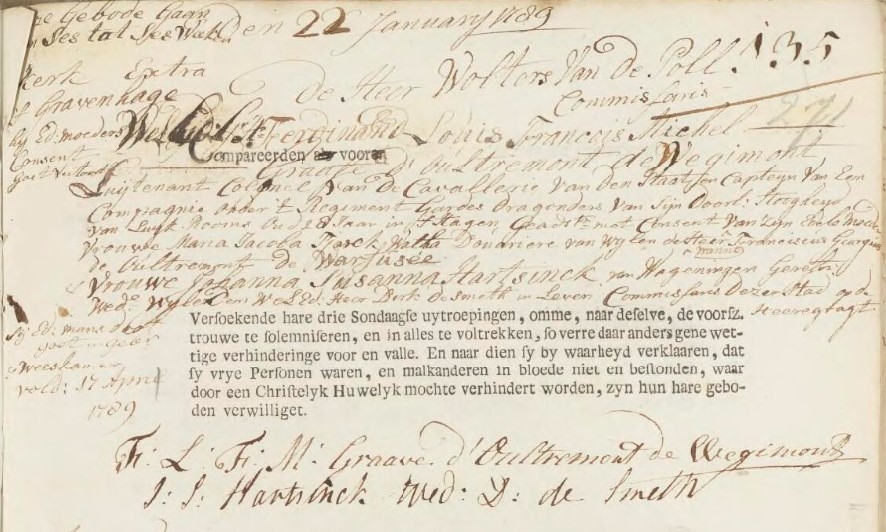 ne Gebode Gaan
Ses tot Ses Weken
den 22 January 1789
135
Kerk Extra
s Gravenhage
de Heer Wolters Van de Poll
Commissaris
271
by Ed: moeders
Consent
goet
Ferdinand Louis Francois Michel
Compareerden als vooren
Graave d'Oultremont de Wegimont
Luytenant Colonel van de Cavallerie van den Staat en Capteyn van Een
Compagnie onder 't Regiment Guardes Dragonders van Zijn Doorl: Hoogheyd
van Luyk Rooms Oud 28 Jaar in s Hagen Geads:t met Consent van Zyn Ed moeder
Vrouwe Maria Jacoba Douariere van Wylen de Heer Franciscus Georgius
de Oultremont de Warfusée
Vrouwe Johanna Susanna Hartsinck van Wageningen Geref:
Wed: Wylen den Wel Ed: Heer Dirk de Smeth in Leven Commissaris Dezer Stad op de
Heeregragt
Sy Ed: mans doot
goet ingeb:
weeskamer
vold: 17 April
1789
Versoekende hare drie Sondaagse uytroepingen, omme, naar deselve, de voorsz.
trouwe te solemniseren, en in alles te voltrekken, so verre daar anders gene wet-
tige verhinderinge voor en valle. En naar dien sy by waarheyd verklaaren, dat
sy vrye Personen waren, en malkanderen in bloede niet en bestonden, waar
door een Christelyk Huwelyk mochte verhindert worden, zyn hun hare gebo-
den verwilliget.
F: L: F: M: Graave d'Oultremont de Wegimont
J: S: Hartsinck Wed: D: de Smeth